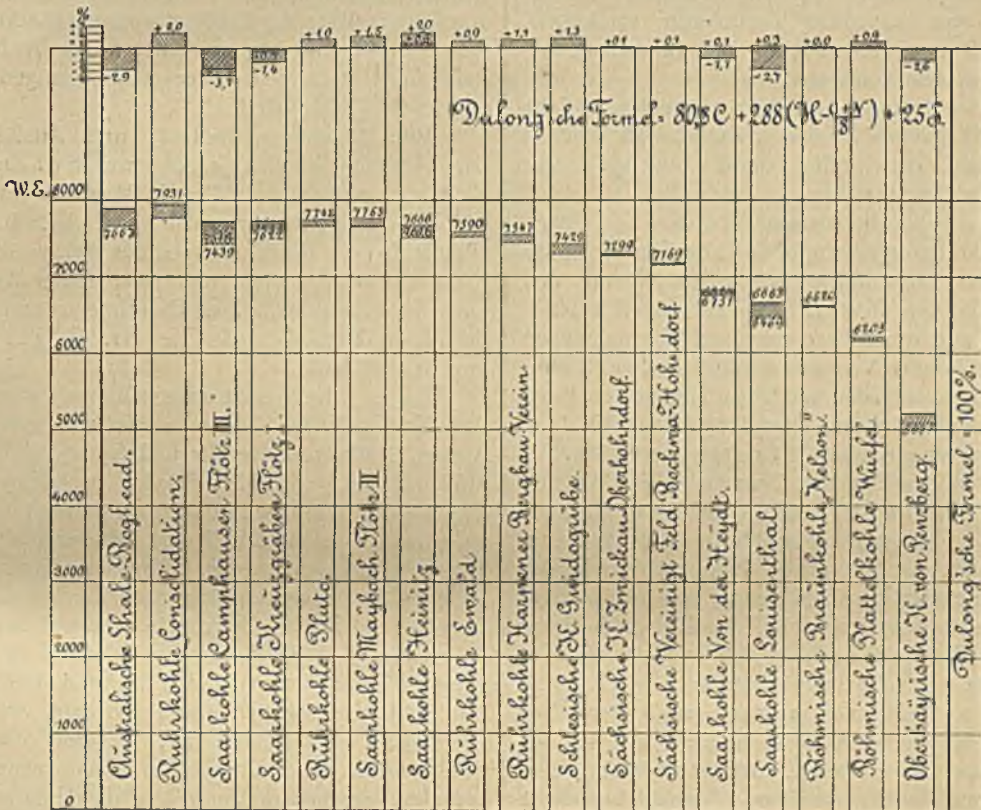 %
-2,9
+2,0
-3,7
-1,4
+1,0
+1,5
+2,0
+0,9
+1,1
+1,3
+0,1
+0,1
+0,1
-1,1
+0,3
-2,7
+0,0
+0,9
-2,6
"Dulong"sche Formel = 80,8 C + 288 (H - ) + 25 S.
W.E. 8000
7000
6000
5000
4000
3000
2000
1000
0
7667
7931
7439
7622
7742
7763
7390
7347
7429
7299
7169
6737
6663
6469
6620
6203
Australische Shale-Boghead.
Ruhrkohle Consolidation.
Saarkohle Camphausen Flötz III.
Saarkohle Kreuzgräben Flötz I.
Ruhrkohle Pluto.
Saarkohle Maybach Flötz II
Saarkohle Heinitz
Ruhrkohle Ewald.
Ruhrkohle Harpener Bergbau Verein.
Schlesische K. Guidogrube.
Sächsische K. Zwickau Oberhohndorf.
Sächsische Vereinigt Feld Bockwa-Hohndorf.
Saarkohle Von der Heydt.
Saarkohle Louisenthal
Böhmische Braunkohle "Nelson".
Böhmische Plattelkohle Würfel
Oberbayrische K. von Penzberg.
Dulong'sche Formel = 100%.